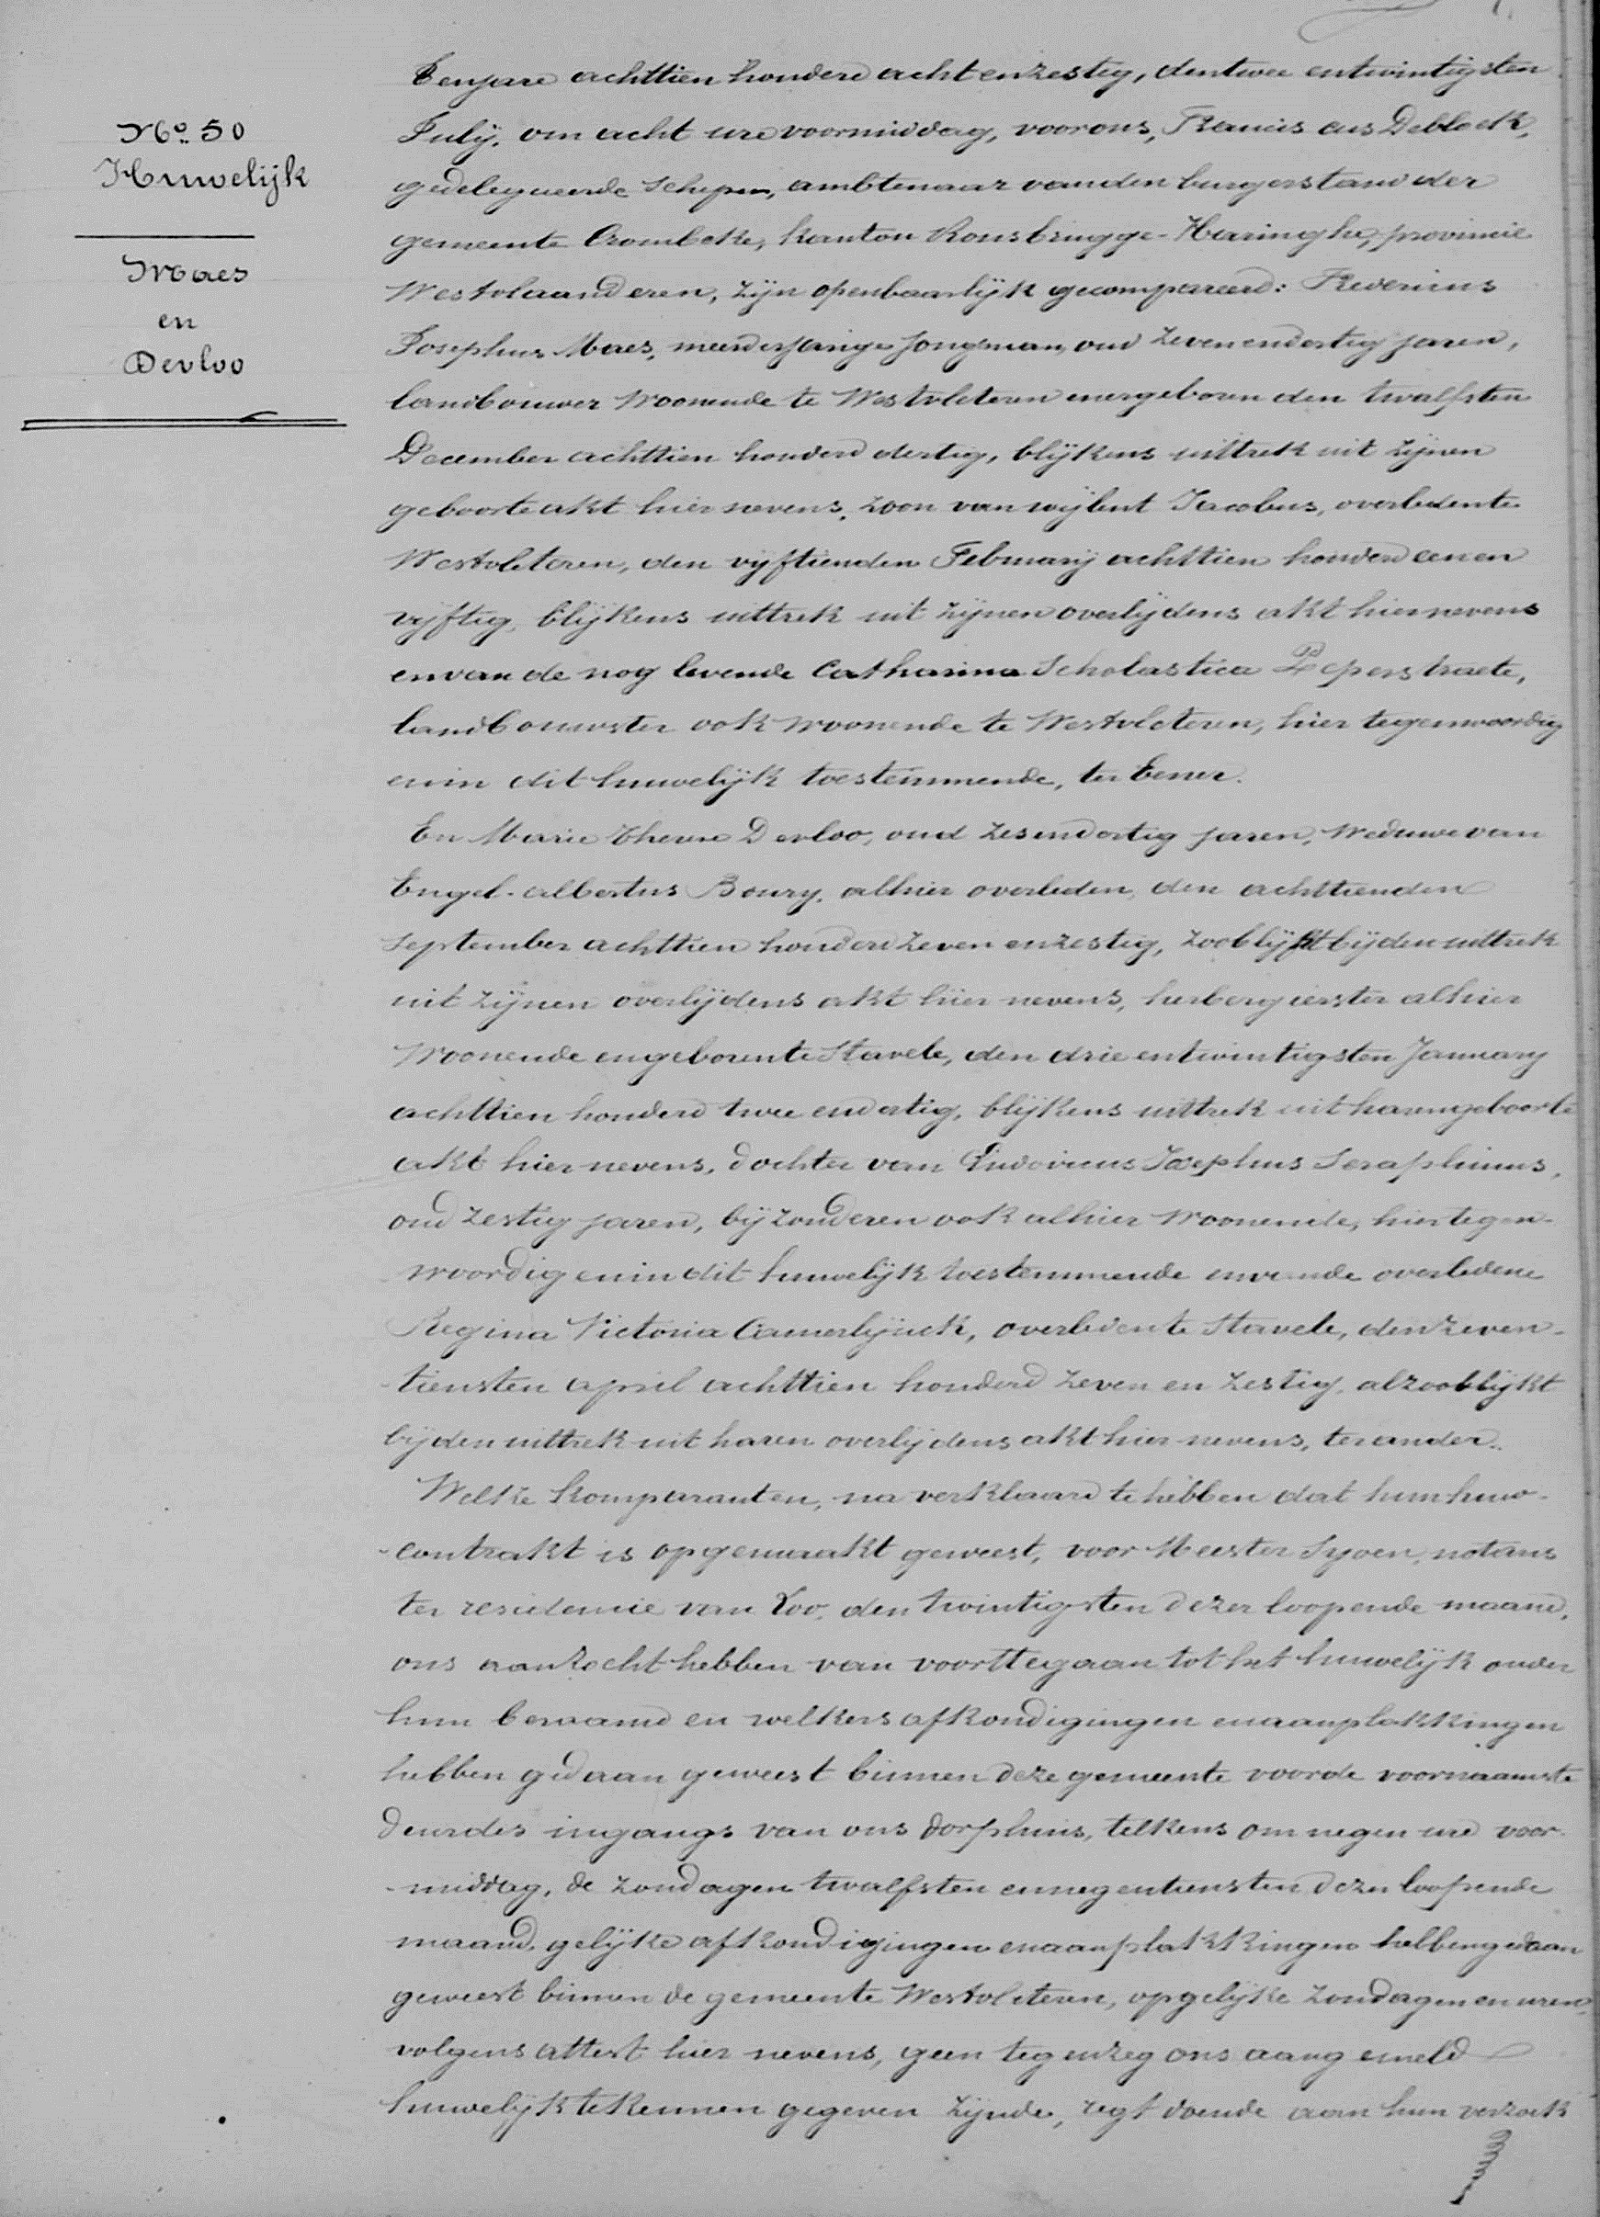 No. 50
Huwelijk
Maes
en
Devloo
Tenjare achttien honderd acht en zestig, den twee entwintigsten
July, om acht ure voormiddag, voor ons, Franciscus Deblock,
gedelegueerde Schepen, ambtenaar van den burgerstand der
gemeente Crombeke, kanton Rousbrugge-Haringhe, provincie
Westvlaanderen, zijn openbaarlijk gecompareerd: Fredericus
Josephus Maes, meerderjarige jongman, oud zevenendertig jaren,
landbouwer woonende te Westvleteren en er geboren den twalfsten
December achttien honderd dertig, blijkens uittrek uit zijnen
geboorte akt hier nevens, zoon van wijlent Jacobus, overleden te
Westvleteren, den vijftienden February achttien honderd een en
vijftig, blijkens uittrek uit zijnen overlijdens akt hier nevens
en van de nog levende Catharina Scholastica Peperstraete,
landbouwster ook woonende te Westvleteren, hier tegenwoordig
en in dit huwelijk toestemmende, ter eener.
En Marie Therese Devloo, oud zesendertig jaren, Weduwe van
Engel-albertus Boury, alhier overleden, den achttienden
September achttien honderd zeven en zestig, zoo blijkt bij den uittrek
uit zijnen overlijdens akt hier nevens, herbergierster alhier
woonende en geboren te Stavele, den drie entwintigsten January
achttien honderd twee endertig, blijkens uittrek uit haren geboorte
akt hier nevens, dochter van Ludovicus Josephus Seraphinus,
oud zestig jaren, bijzonderen ook alhier woonende, hier tegen-
woordig en in dit huwelijk toestemmende en van de overledene
Regina Victoria Camerlijnck, overleden te Stavele, den zeven-
tiensten april achttien honderd zeven en zestig, alzoo blijkt
bij den uittrek uit haren overlijdens akt hier nevens, ter ander.
Welke komparanten, na verklaard te hebben dat hun huw-
-contrakt is opgemaakt geweest, voor Meester Syoen, notaris
ter residencie van Loo, den twintigsten dezer loopende maand,
ons aanzocht hebben van voort te gaan tot het huwelijk onder
hun beraamd en welkers afkondigingen en aanplakkingen
hebben gedaan geweest binnen deze gemeente voor de voornaamste
deur des ingangs van ons dorphuis, telkens om negen ure voor-
-middag, de zondagen twalfsten en negentiensten dezer loopende
maand, gelijke afkondigingen en aanplakkingen hebben gedaan
geweest binnen de gemeente Westvleteren, op gelijke zondagen en uren,
volgens attest hier nevens, geen tegenzeg ons aangemeld
huwelijk te kennen gegeven zijnde, regt doende aan hun verzoek